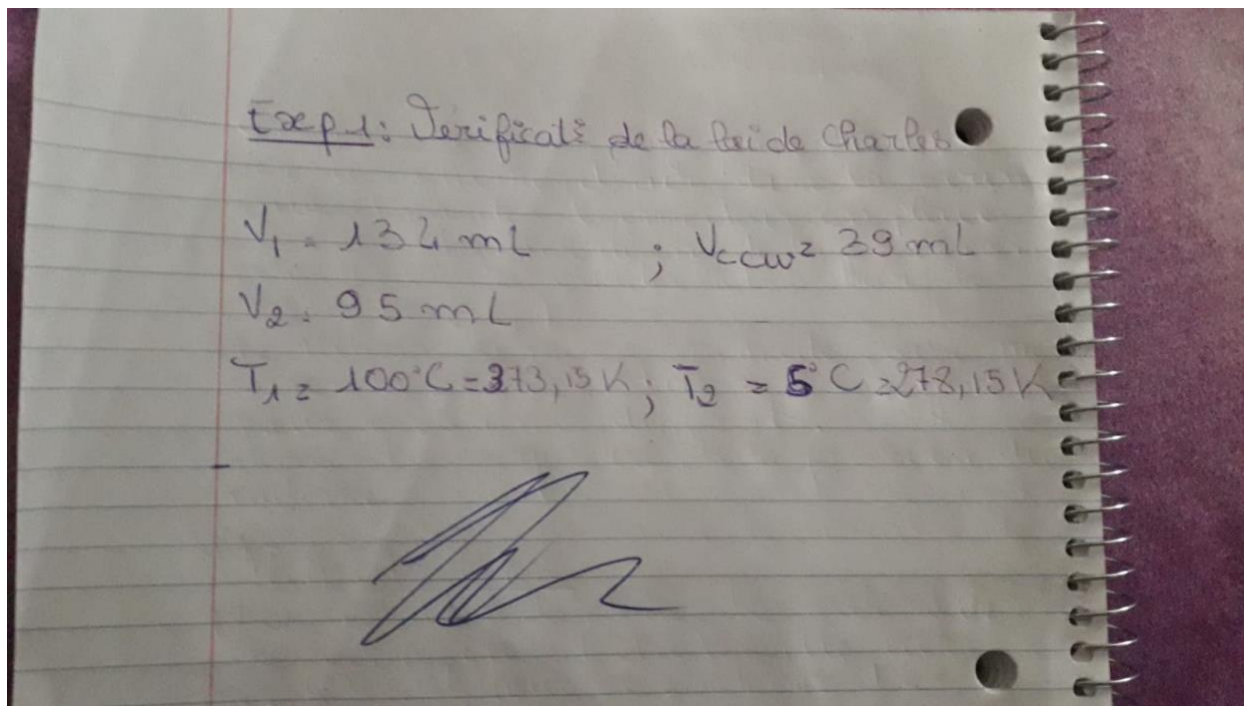 Exp 1: Verificat° de la loi de Charles
V₁ = 134 mL ; Vccw = 39 mL
V₂ = 95 mL
T₁ = 100°C = 373,15 K ; T₂ = 5°C = 278,15 K